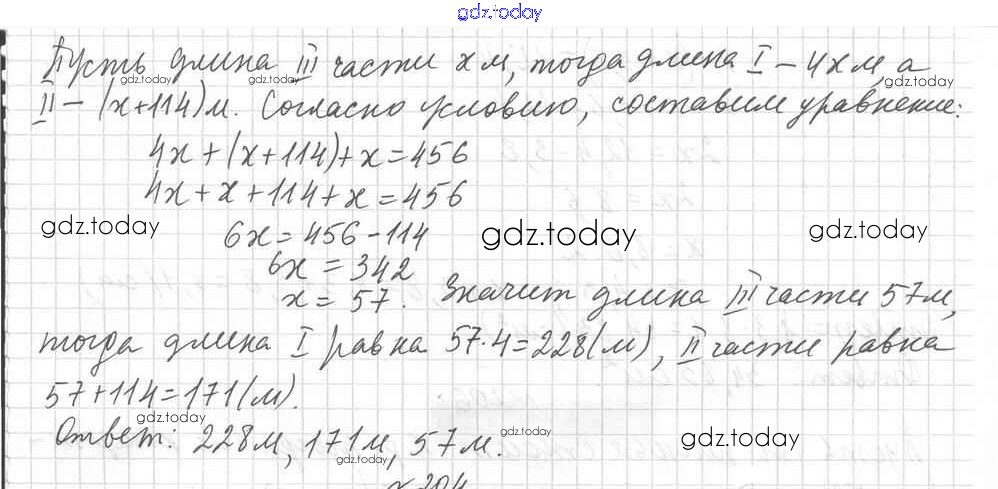 gdz.today
Пусть длина III части x м, тогда длина I – 4x м, а
gdz.today gdz.today gdz.today
II – (x+114) м. Согласно условию, составим уравнение:
4x+(x+114)+x=456
4x+x+114+x=456
gdz.today gdz.today gdz.today
6x=456-114
6x=342
x=57. Значит длина III части 57 м,
тогда длина I равна 57·4=228(м), II части равна
57+114=171(м).
gdz.today gdz.today gdz.today
Ответ: 228 м, 171 м, 57 м.
gdz.today